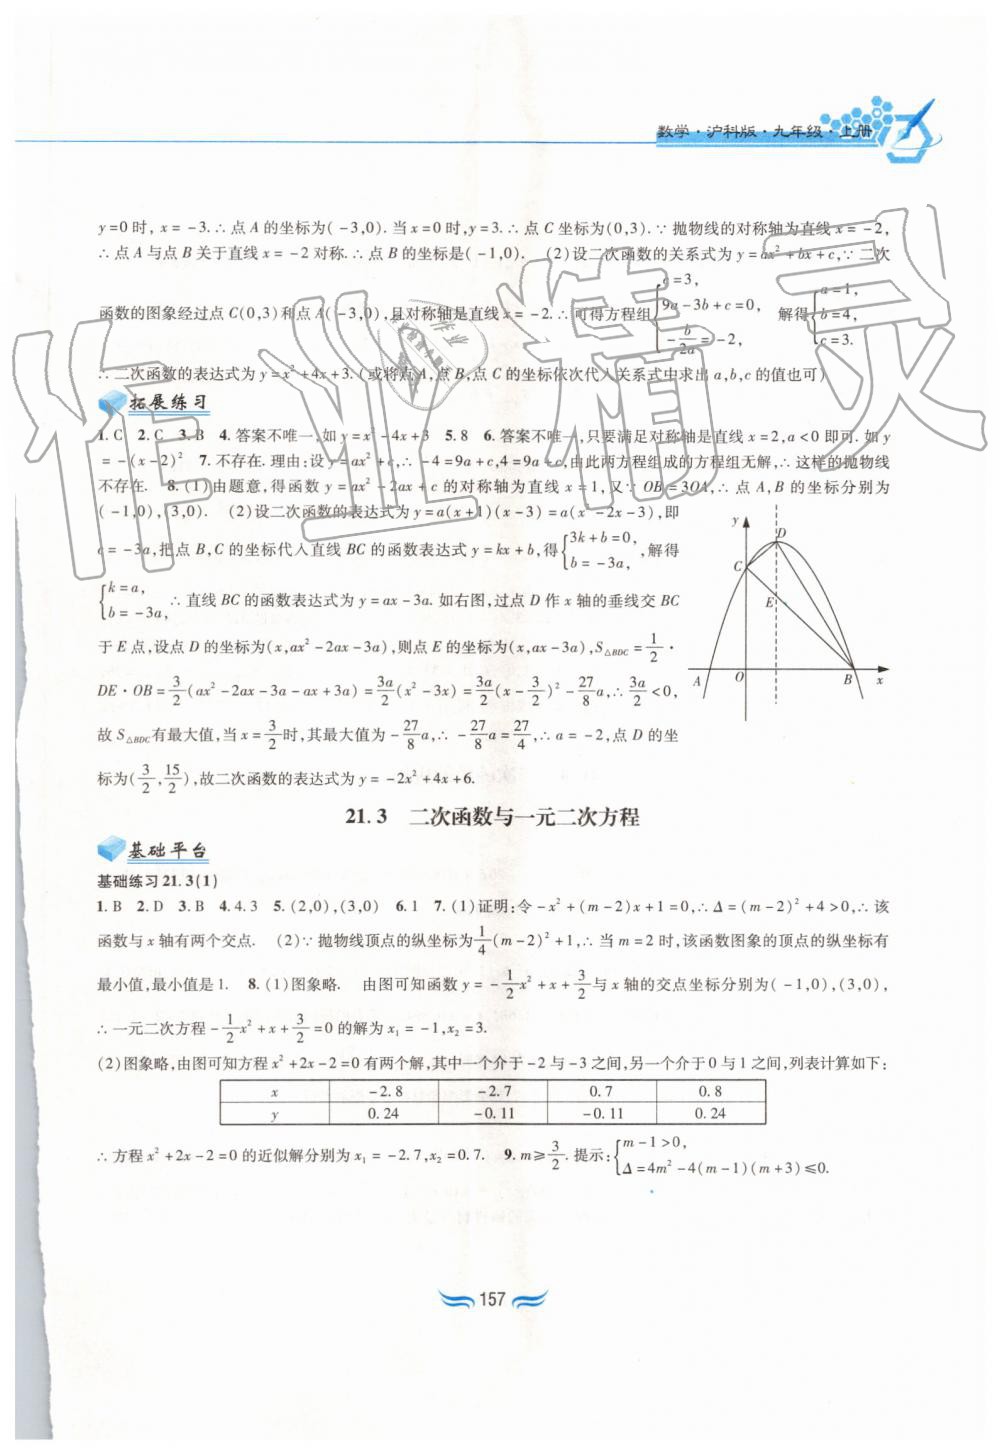 数学·沪科版·九年级·上册
y=0时, x=-3.∴点A的坐标为(-3,0).当x=0时,y=3.∴点C坐标为(0,3).∵抛物线的对称轴为直线x=-2,
∴点A与点B关于直线x=-2对称.∴点B的坐标是(-1,0). (2)设二次函数的关系式为y=ax²+bx+c,∵二次
函数的图象经过点C(0,3)和点A(-3,0),且对称轴是直线x=-2.∴可得方程组{c=3, 9a-3b+c=0, -b/2a=-2, 解得{a=1, b=4, c=3.
∴二次函数的表达式为y=x²+4x+3.(或将点A,点B,点C的坐标依次代入关系式中求出a,b,c的值也可)
拓展练习
1. C 2. C 3. B 4. 答案不唯一,如y=x²-4x+3 5. 8 6. 答案不唯一,只要满足对称轴是直线x=2,a<0即可.如y
=-(x-2)² 7. 不存在.理由:设y=ax²+c,∴-4=9a+c,4=9a+c,由此两方程组成的方程组无解,∴这样的抛物线
不存在. 8. (1)由题意,得函数y=ax²-2ax+c的对称轴为直线x=1,又∵OB=3OA,∴点A,B的坐标分别为
(-1,0),(3,0). (2)设二次函数的表达式为y=a(x+1)(x-3)=a(x²-2x-3),即
c=-3a,把点B,C的坐标代入直线BC的函数表达式y=kx+b,得{3k+b=0, b=-3a, 解得
{k=a, b=-3a, ∴直线BC的函数表达式为y=ax-3a.如右图,过点D作x轴的垂线交BC
于E点,设点D的坐标为(x,ax²-2ax-3a),则点E的坐标为(x,ax-3a),S△BDC=1/2·
DE·OB=3/2(ax²-2ax-3a-ax+3a)=3a/2(x²-3x)=3a/2(x-3/2)²-27/8a,∴3a/2<0,
故S△BDC有最大值,当x=3/2时,其最大值为-27/8a,∴-27/8a=27/4,∴a=-2,点D的坐
标为(3/2,15/2),故二次函数的表达式为y=-2x²+4x+6.
y
D
C
E
A
O
B
x
21.3 二次函数与一元二次方程
基础平台
基础练习21.3(1)
1. B 2. D 3. B 4. 4.3 5. (2,0),(3,0) 6. 1 7. (1)证明:令-x²+(m-2)x+1=0,∴Δ=(m-2)²+4>0,∴该
函数与x轴有两个交点. (2)∵抛物线顶点的纵坐标为1/4(m-2)²+1,∴当m=2时,该函数图象的顶点的纵坐标有
最小值,最小值是1. 8. (1)图象略. 由图可知函数y=-1/2x²+x+3/2与x轴的交点坐标分别为(-1,0),(3,0),
∴一元二次方程-1/2x²+x+3/2=0的解为x₁=-1,x₂=3.
(2)图象略,由图可知方程x²+2x-2=0有两个解,其中一个介于-2与-3之间,另一个介于0与1之间,列表计算如下:
x -2.8 -2.7 0.7 0.8
y 0.24 -0.11 -0.11 0.24
∴方程x²+2x-2=0的近似解分别为x₁=-2.7,x₂=0.7. 9. m≥3/2.提示:{m-1>0, Δ=4m²-4(m-1)(m+3)≤0.
157
作业精灵